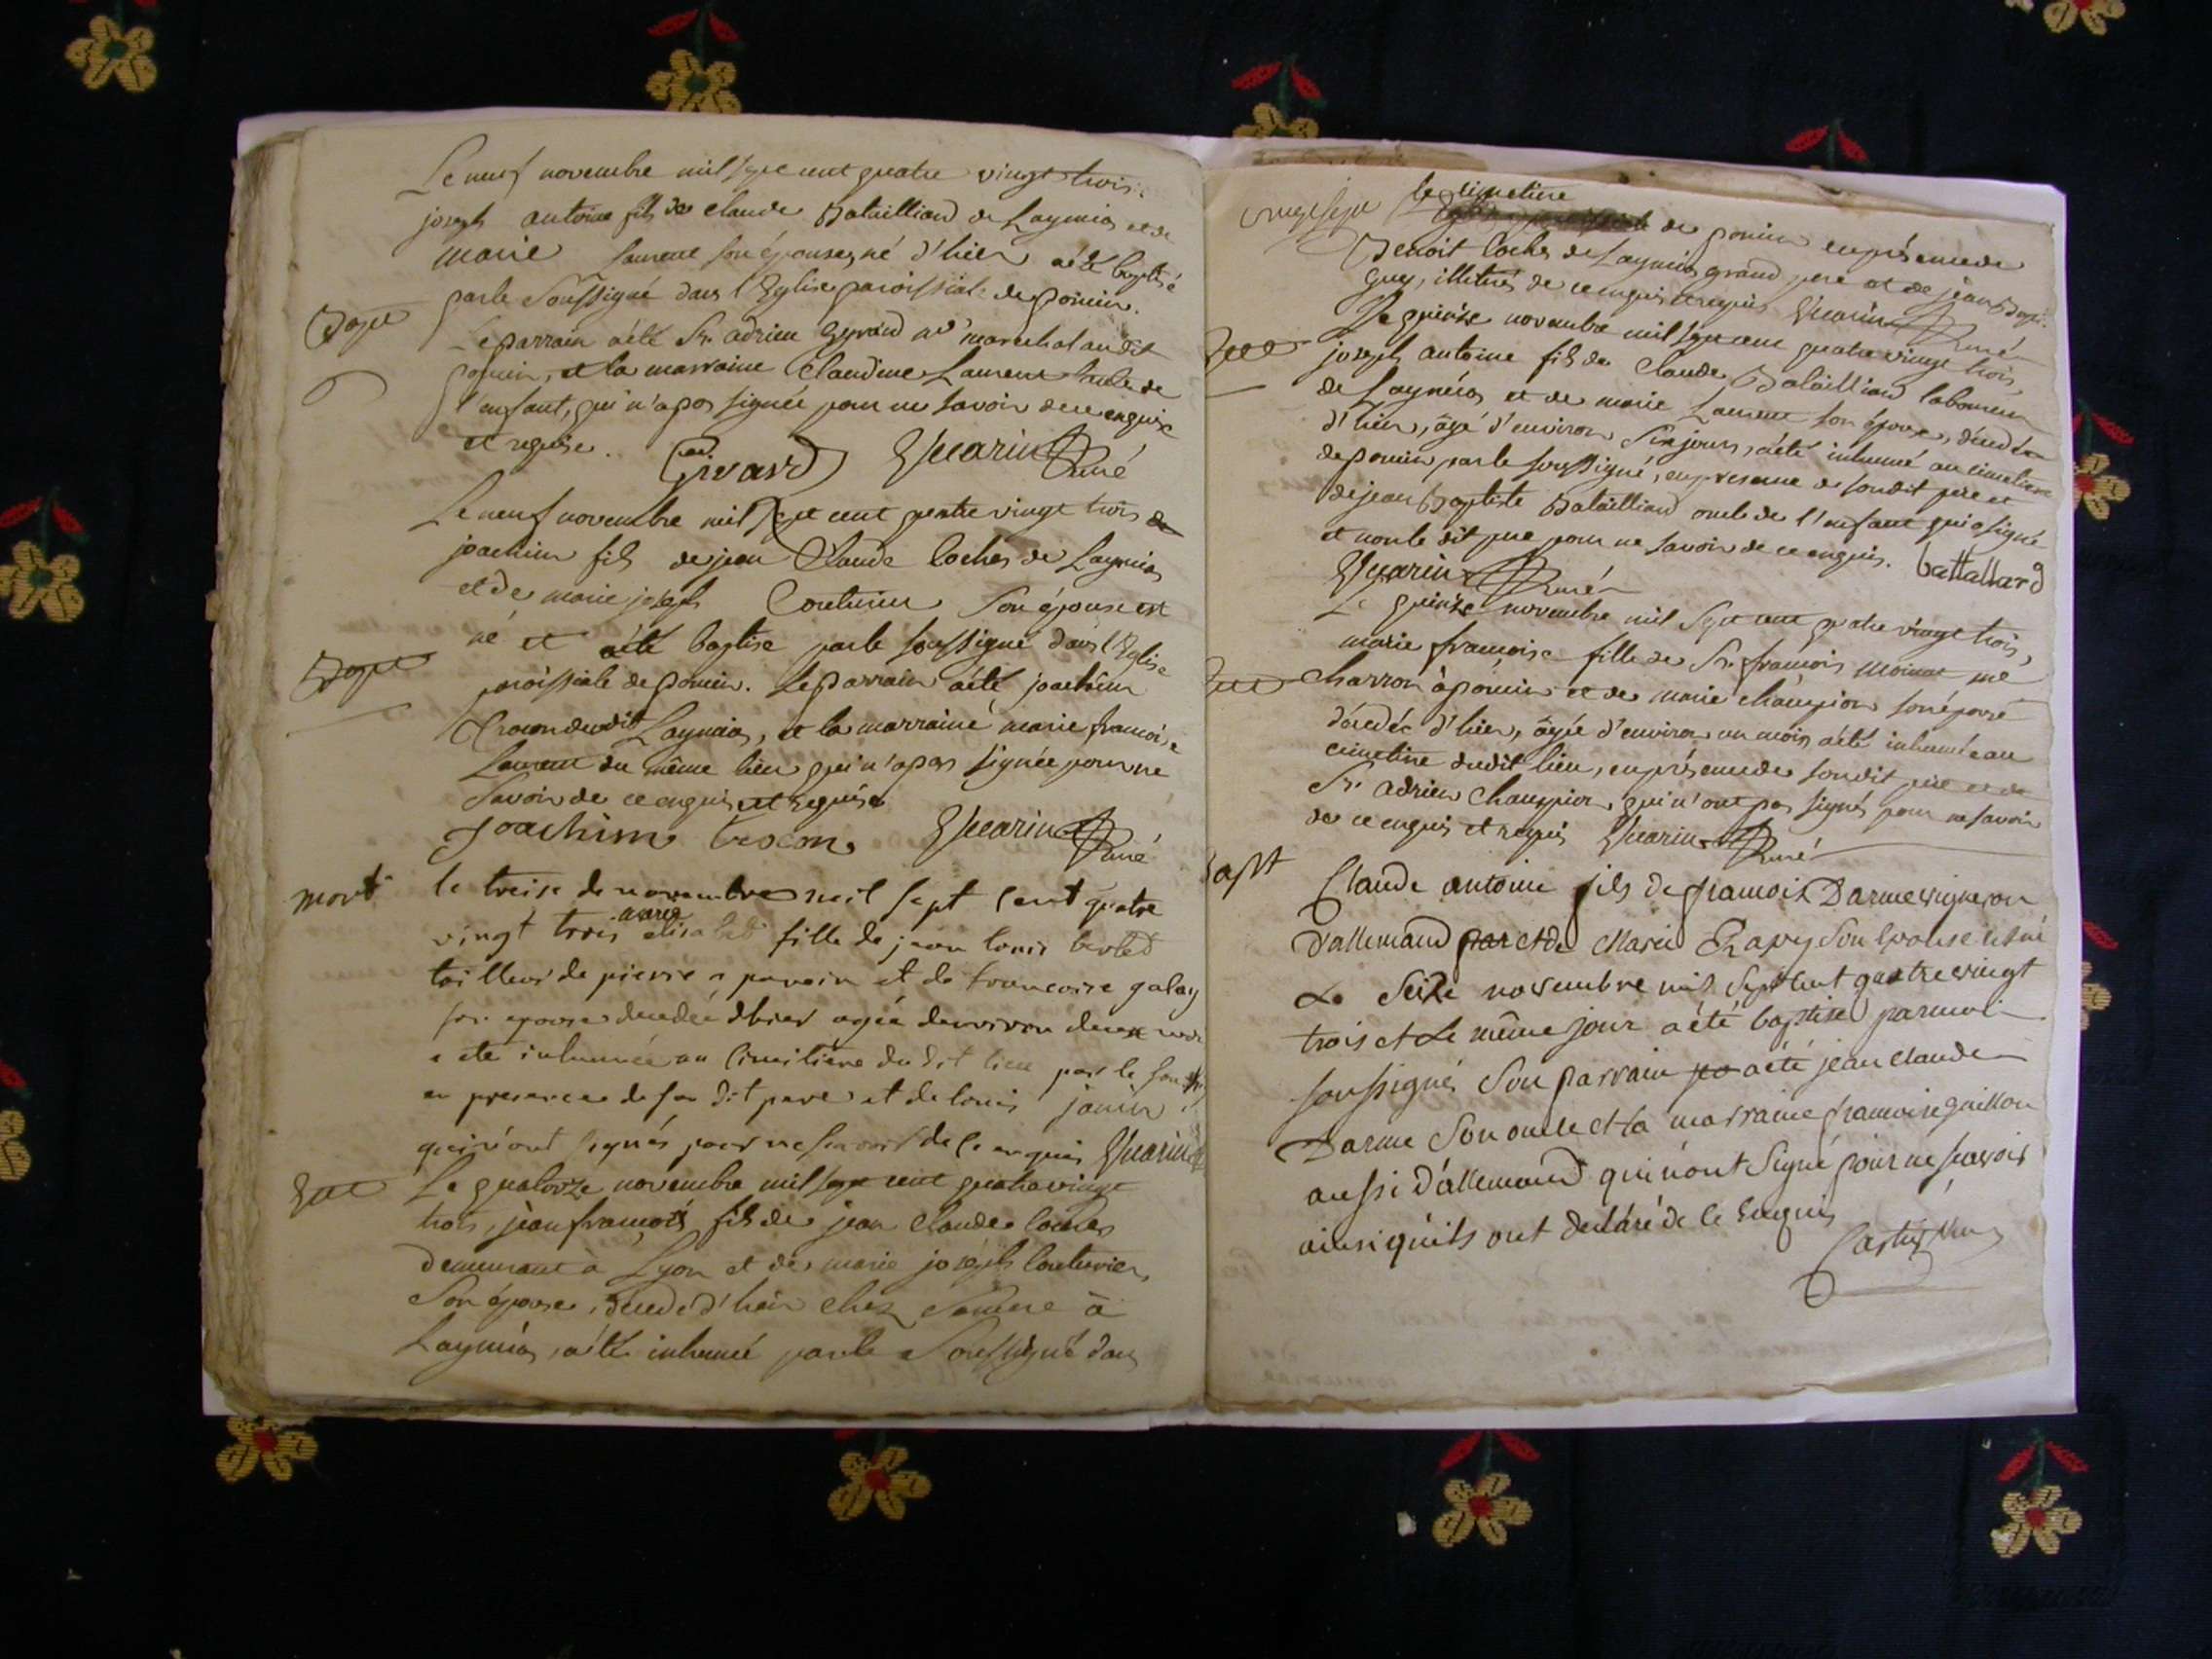 Le neuf novembre mil sept cent quatre vingt trois
joseph antoine fils de claude Batailliard de Laymia et de
marie Laurent son épouse, né d'hier a été baptisé
par le Soussigné dans l'Eglise paroissiale de
Bapt
Le parrain a été Sr. adrien marechal audit
et la marraine Claudine Laurent tante de
l'enfant, qui n'a pas signée pour ne savoir de ce enquise
et requise. Girard curé
Le neuf novembre mil sept cent quatre vingt trois
joachim fils de jean Claude loches de Laymia
et de marie joseph Couturier Son épouse est
né et a été baptisé par le soussigné dans l'Eglise
Bapt
paroissiale de. Le parrain a été joachim
dudit Laymia, et la marraine marie françoise
Laurent du même lieu qui n'a pas signée pour ne
Savoir de ce enquise et requise
Joachim curé
mort
le treise de novembre mil sept cent quatre
marie
vingt trois elisabet fille de jean louis
tailleur de pierre a et de francoise galay
son epouse decedée d'hier agée denviron deux
a eté inhumée au Cimitiere du dit lieu par le
en presence de son dit pere et de louis
qui n'ont signés pour ne savoir de ce enquis
Le quatorze novembre mil sept cent quatre vingt
trois, jean françois fils de jean claude loches
demeurant à Lyon et de marie joseph Couturier,
Son épouse, décédé d'hier chez à
Laymia, a été inhumé par le Soussigné dans
vingt sept
le cimetiere
de en présence de
Benoit loches de Laymia grand pere et de jean Bapt.
Guy, illiterés de ce enquis et requis curé
Le quinze novembre mil sept cent quatre vingt trois,
joseph antoine fils de Claude Batailliard laboureur
de Laymia et de marie Laurent son épouse, décédé
d'hier, âgé d'environ Six jours, a été inhumé au cimetiere
de par le soussigné, en presence de sondit père et
de jean Baptiste Batailliard oncle de l'enfant qui a signé
et non le dit pere pour ne savoir de ce enquis. battallard
curé
Le quinze novembre mil Sept cent quatre vingt trois,
marie françoise fille de Sr. françois moinat me
charron à et de marie champion son épouse
décédée d'hier, âgée d'environ un mois a été inhumée au
cimetiere dudit lieu, en présence de sondit père et de
Sr. adrien Champion, qui n'ont pas signés pour ne savoir
de ce enquis et requis curé
bapt
Claude antoine fils de francois Darme vigneron
D'allemand par et de Marie Son Epouse est né
Le Seize novembre mil Sept cent quatre vingt
trois et Le même jour a été baptisé par moi
soussigné Son parrain a été jean claude
Darme Son oncle et la marraine francoise guillon
aussi D'allemand qui n'ont Signé pour ne scavoir
ainsi qu'ils ont declaré de ce Enquis